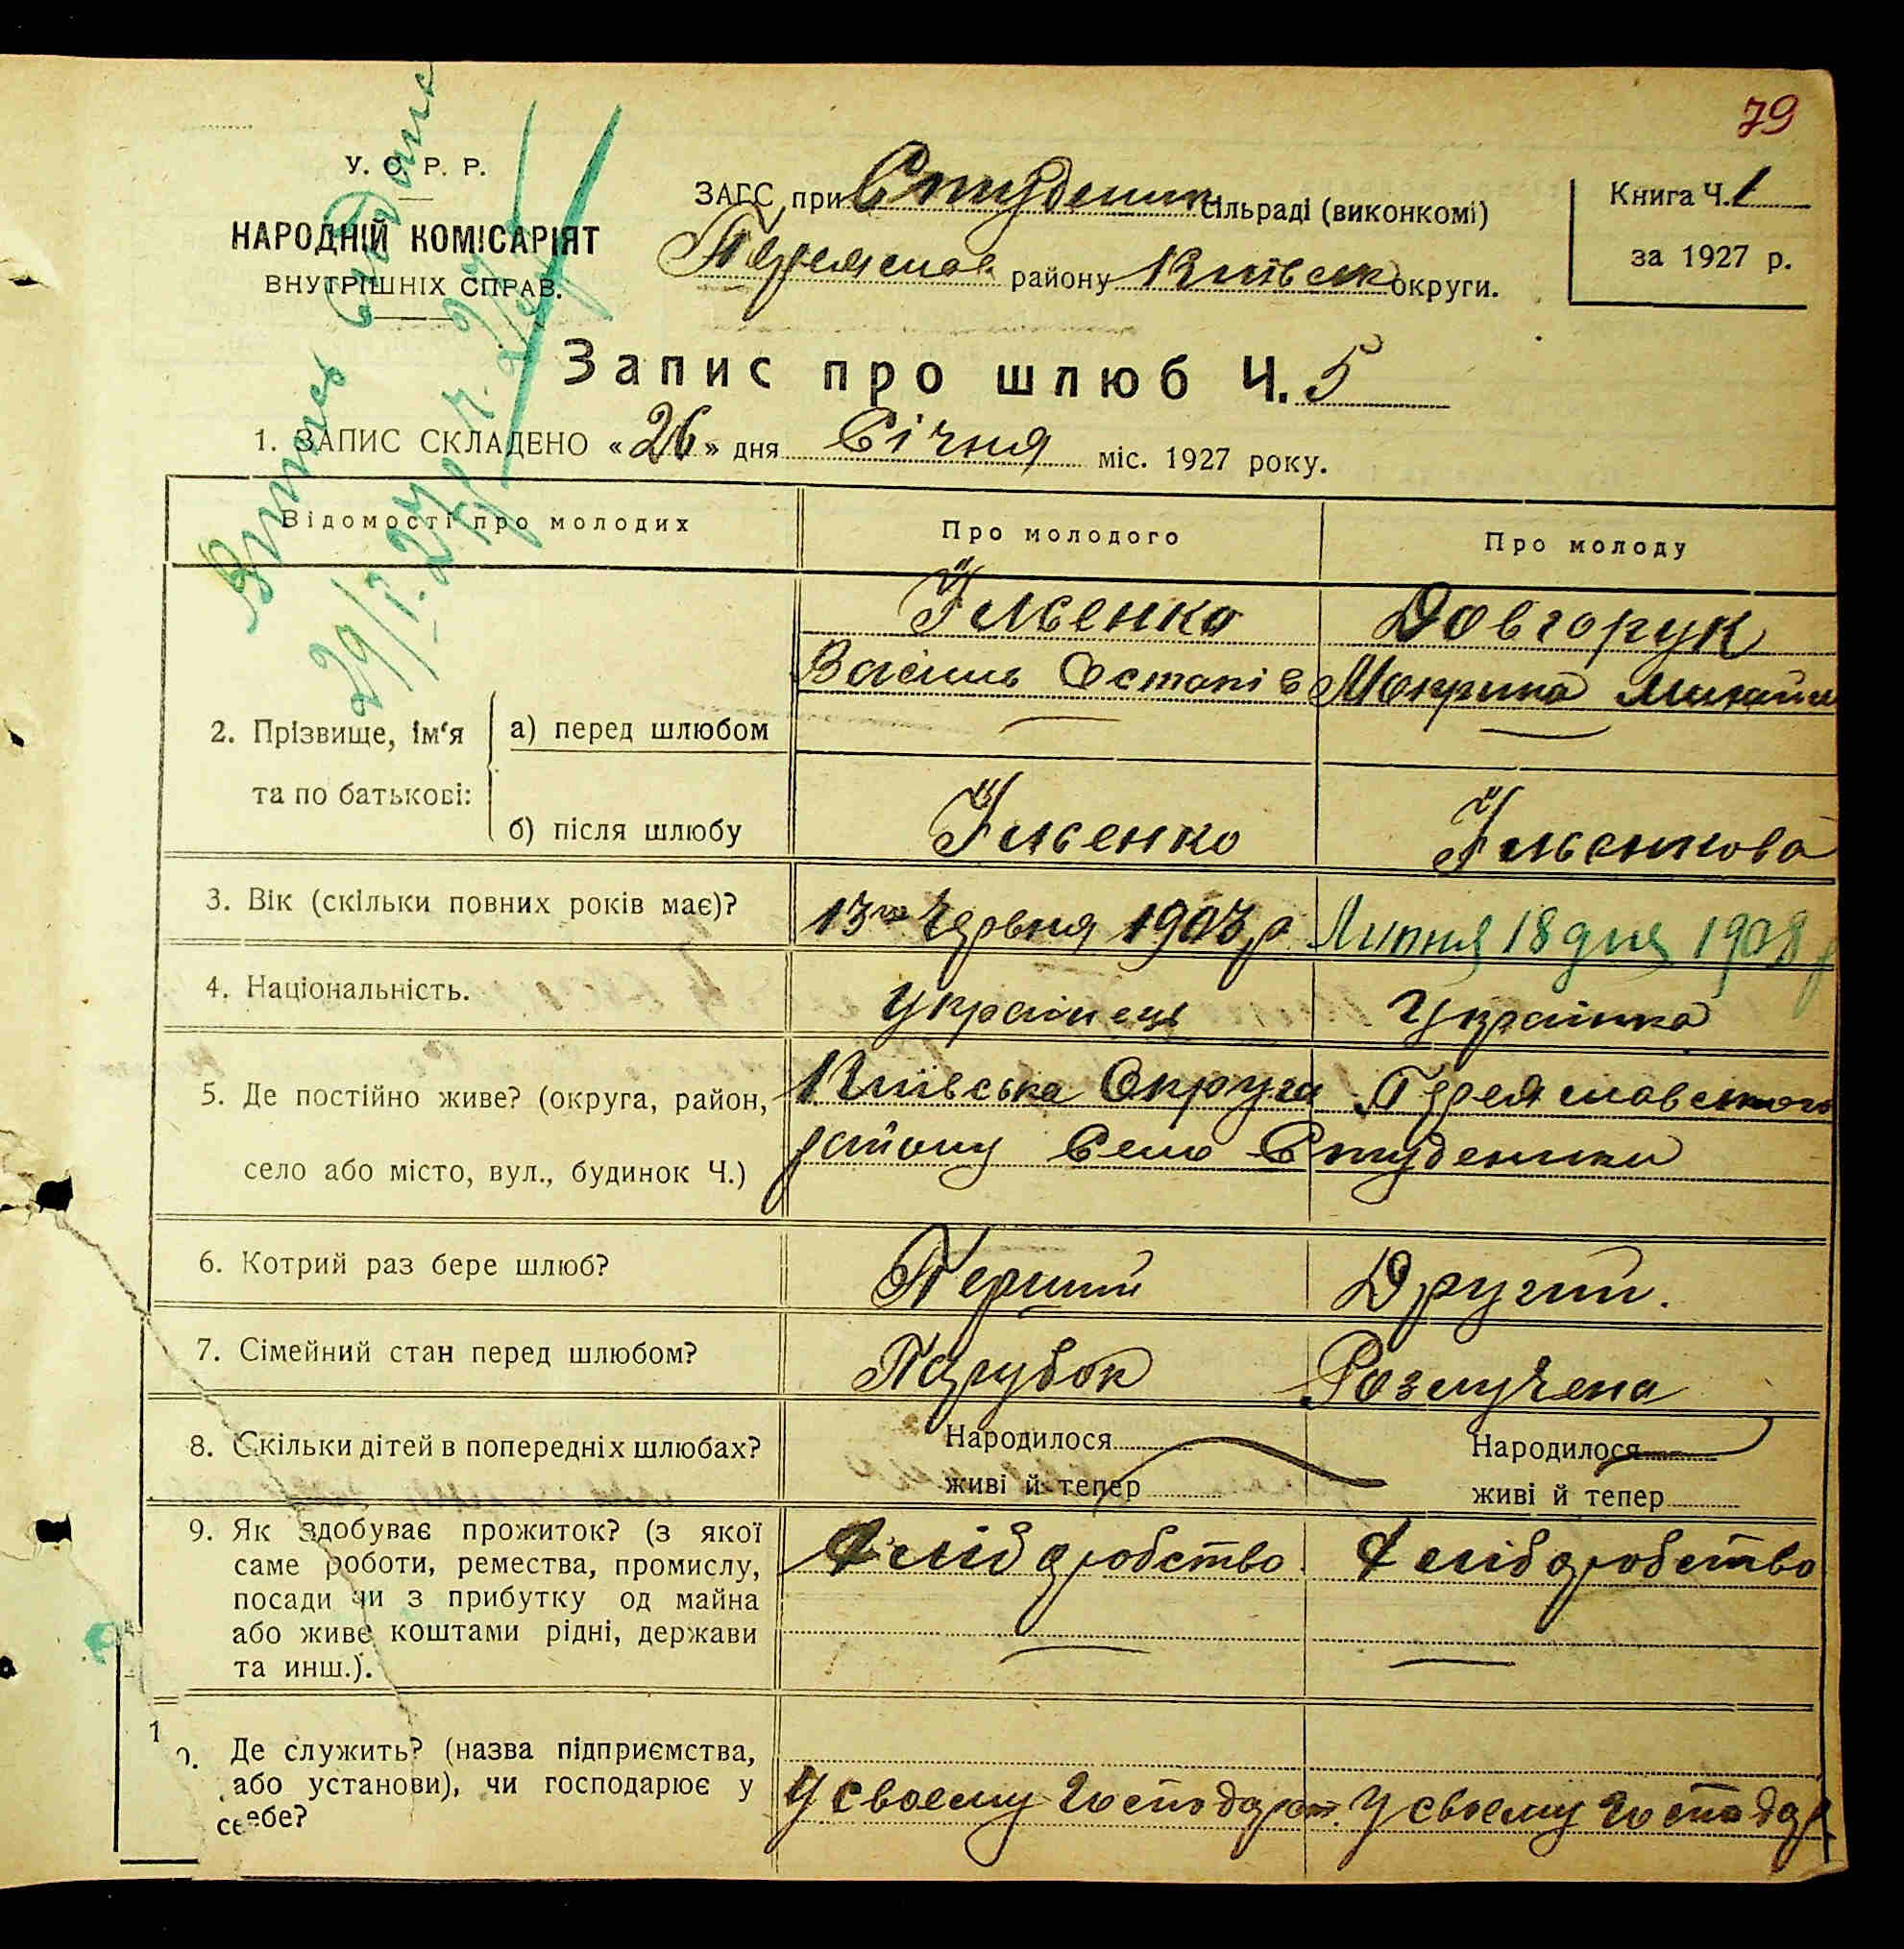 79
У. С. Р. Р.
НАРОДНІЙ КОМІСАРІЯТ
ВНУТРІШНІХ СПРАВ.
ЗАГС при Студеник сільраді (виконкомі)
Переяслав району Київськ округи.
Книга Ч. 1
за 1927 р.
Запис про шлюб Ч. 5
1. ЗАПИС СКЛАДЕНО «26» дня Січня міс. 1927 року.
29/I.27
Відомості про молодих
Про молодого
Про молоду
2. Прізвище, ім‘я та по батькові:
а) перед шлюбом
Їльєнко
Василь Остапів
Довгорук
Мокрина Михайл
б) після шлюбу
Їльєнко
Їльєнкова
3. Вік (скільки повних років має)?
13го Червня 1907 р
Липня 18 дня 1908 р
4. Національність.
Українець
Українка
5. Де постійно живе? (округа, район,
село або місто, вул., будинок Ч.)
Київська Округа Переяславського
району Село Студеники
6. Котрий раз бере шлюб?
Перший
Другий.
7. Сімейний стан перед шлюбом?
Парубок
Розлучена
8. Скільки дітей в попередніх шлюбах?
Народилося
живі й тепер
Народилося
живі й тепер
9. Як здобуває прожиток? (з якої
саме роботи, ремества, промислу,
посади чи з прибутку од майна
або живе коштами рідні, держави
та инш.).
Хліборобство.
Хліборобство
10. Де служить? (назва підприємства,
або установи), чи господарює у
себе?
У своему господарст.
У своему господар